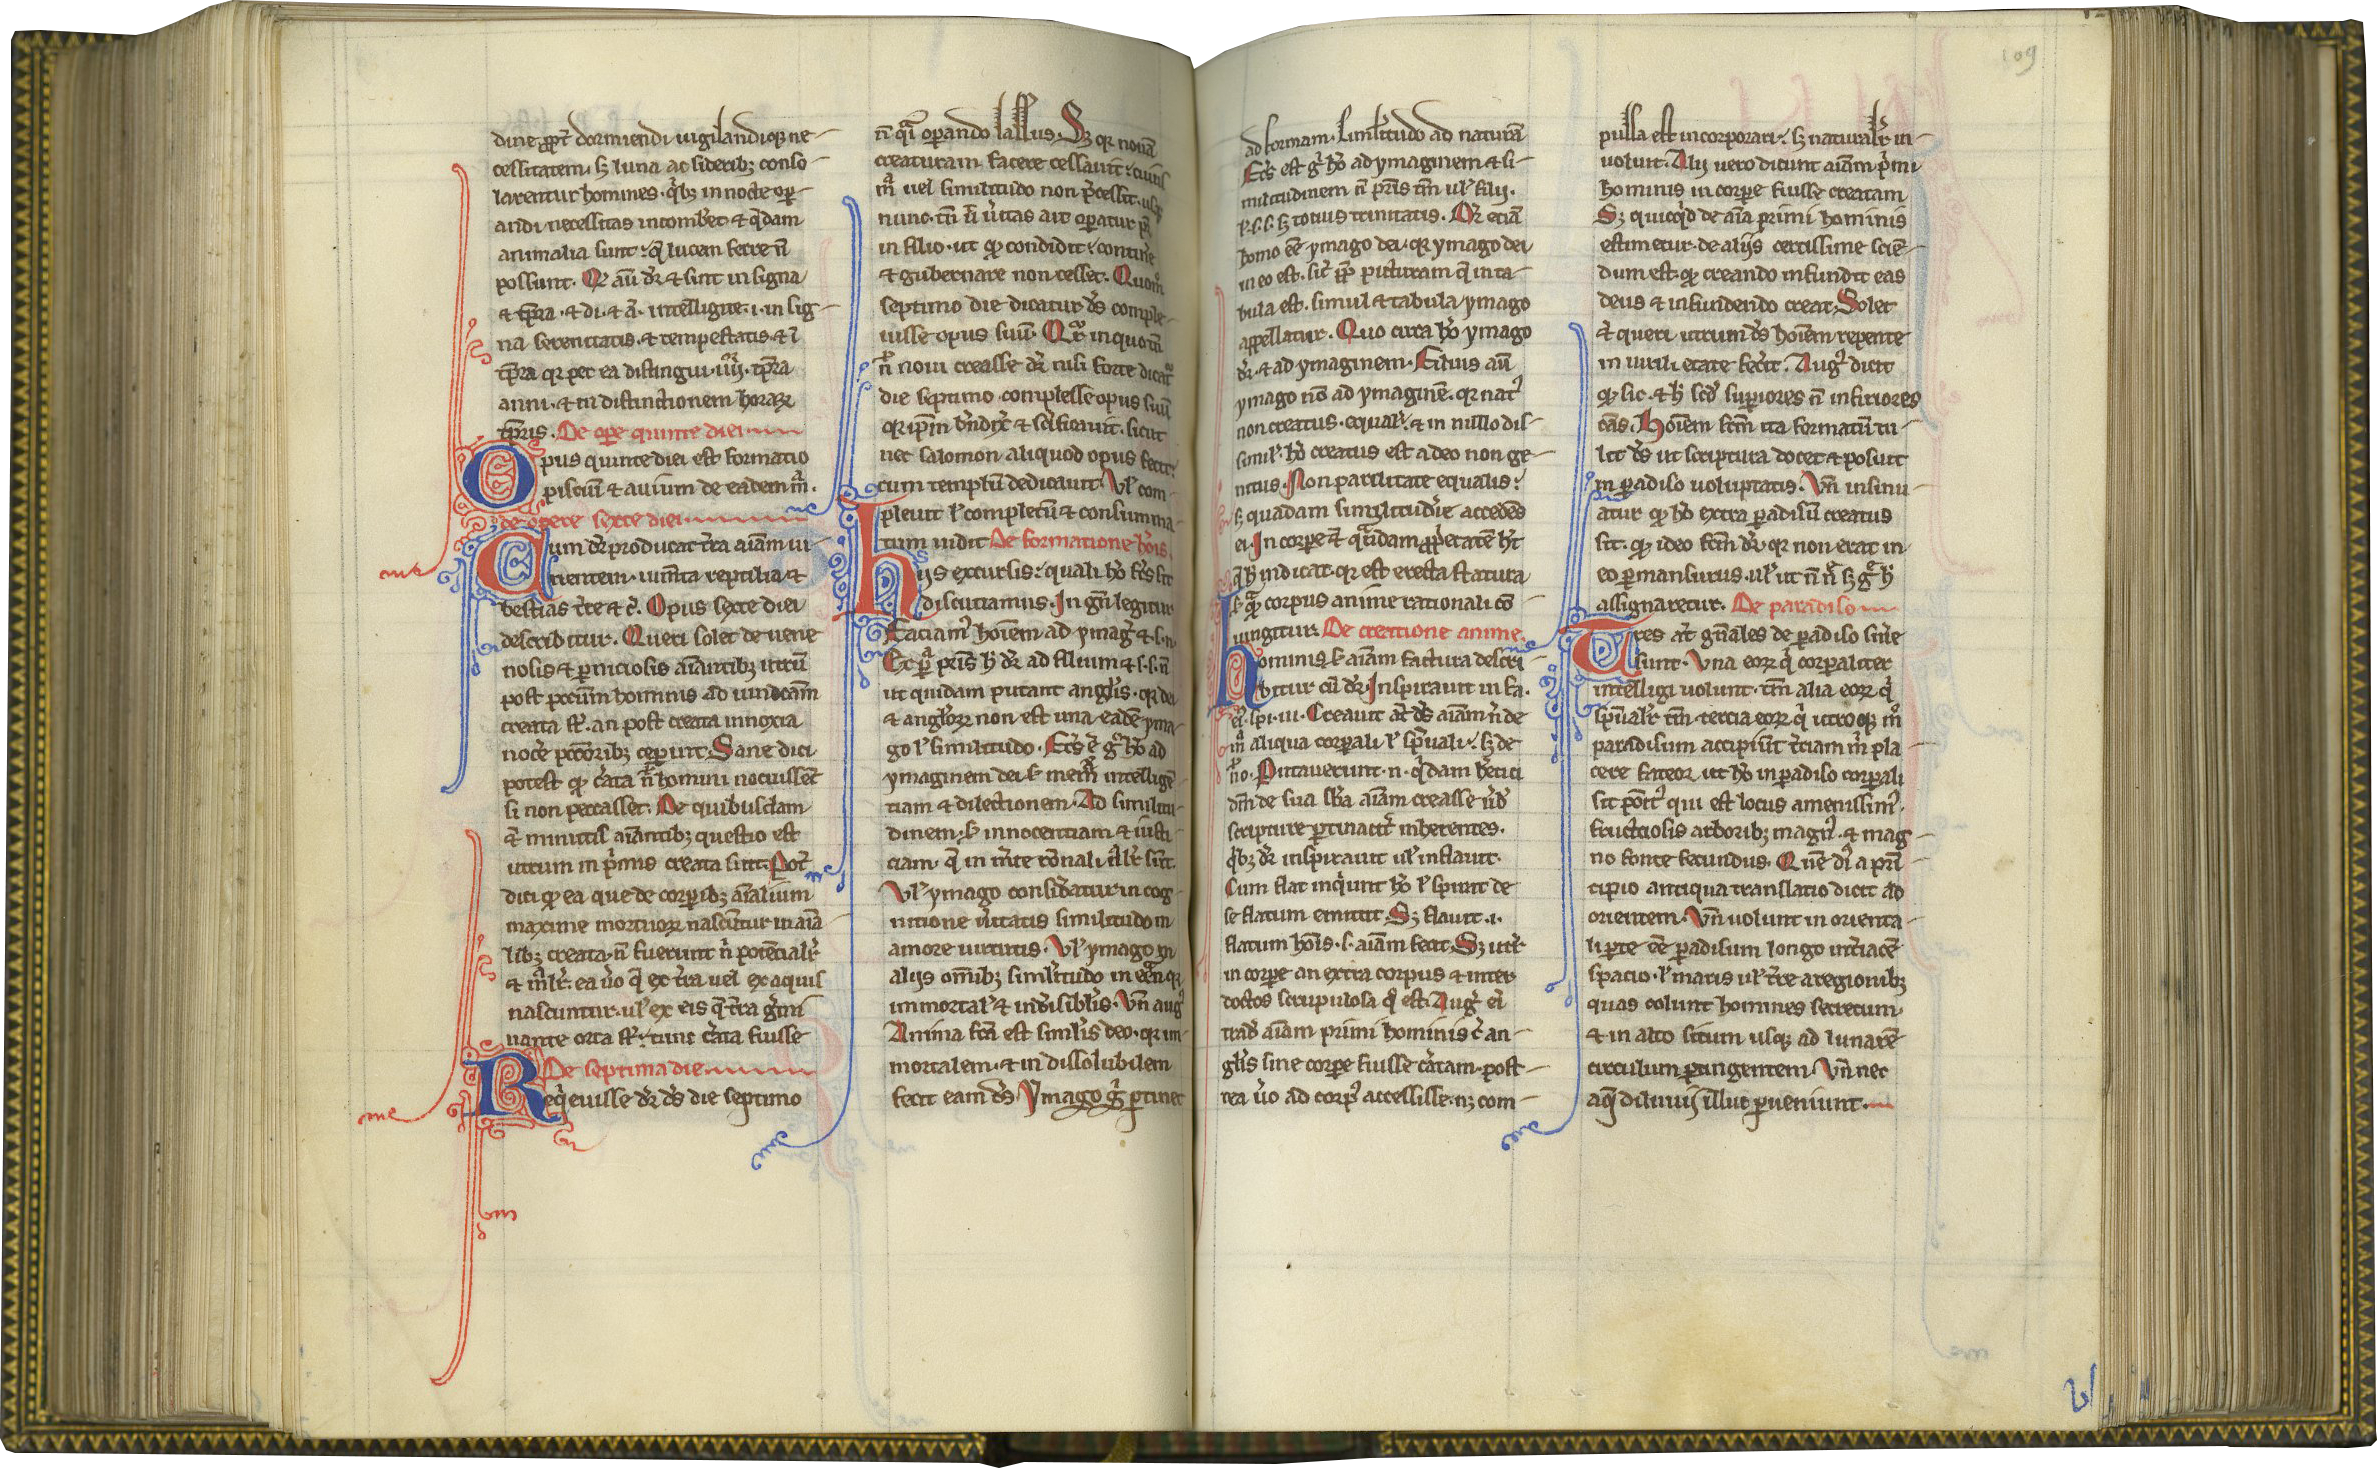 dine ꝓpt̄ dormiendi uigilandiqꝫ ne-
cessitatem. sꝫ luna ac sideribꝫ conso-
larentur homines. q̄ibꝫ in nocte oꝑ-
andi necessitas incomb̄et. ⁊ q̄dam
animalia sunt. q̄ lucem ferre n̄
possunt. Qꝛ aū dr̄ ⁊ sint in signa
⁊ tp̄ra. ⁊ di. ⁊ a. intelligitē. i. in sig-
na serenitatis. ⁊ tempestatis. ⁊ ī
tp̄ra qꝛ per ea distingui. iiii. tp̄ra
anni. ⁊ in distinctionem horaꝝ
tp̄ris. De oꝑe quinte diei
Opus quinte diei est formatio
pisciū ⁊ auium de eadem mā.
de opere sexte diei
Cum dr̄ producat t̄ra aīam ui-
uentem. ium̄ta reptilia ⁊
bestias t̄re ⁊ c̄. Opus sexte diei
describitur. Queri solet de uene
nosis ⁊ ꝑniciosis aīantibꝫ utrū
post pcc̄m hominis ad uindc̄am
creata sr̄. an post creata innoxia
noc̄e pccōribꝫ ceꝑint. Sane dici
potest qꝫ c̄ata n̄ homini nocuissēt
si non peccasset. De quibusdam
ē minutis aīantibꝫ questio est
utrum in p̄mis creata sint. Pōt
dici qꝫ ea que de corꝑibꝫ aīalium
maxime mortuoꝝ nascūtur in aīa
libꝫ creatis n̄ fuerunt n̄ potēcialr̄
⁊ mālr̄. ea ūo q̄ ex t̄ra uel ex aquis
nascuntur. ul̄ ex eis q̄ t̄ra ḡmi
nante orta sr̄. tunc c̄ata fuisse
De septima die
Req̄euisse dr̄ ds̄ die septimo
n̄ q̄i oꝑando lassus. Sꝫ qꝛ nouā
creaturam facere cessauit. cuius
mā uel similitudo non p̄cessit. usqꝫ
nunc. tn̄ ut ūitas ait oꝑatur pr̄
in filio. ut qꝫ condidit. contiṅe
⁊ gubernare non cesset. Quom̊
septimo die dicatur ds̄ comple-
uisse opus suū. Qr̄ in quom̊
n̄ noui creasse dr̄ nisi forte dicat̄
die septimo complesse opus suū
qꝛ ip̄m bn̄dix̄ ⁊ sc̄ificauit. sicut
nec salomon aliquod opus fecit.
cum templū dedicauit. Vl̄ com-
pleuit l̄ completū ⁊ consumma-
tum uidit De formatione hōis.
Hiis excursis. quali hō fc̄s sit
discutiamus. In gn̄ legitur
Faciam hoīem ad ymaḡ ⁊ s. n.
Ex ꝑā pr̄is h̄ dr̄ ad filium ⁊ s. s. n̄
ut quidam putant angl̄is. qꝛ dei
⁊ angl̄oꝝ non est una eadē yma-
go l̄ similitudo. Fc̄s ē ḡ hō ad
ymaginem dei. s̄. mem̄ intelligē
tiam ⁊ dilectionem. Ad similitu-
dinem. s̄. innocentiam ⁊ iusti-
ciam. q̄ in m̄te rōnali nālr̄ sūt.
Vl̄ ymago consid̄atur in cog-
nitione ūitatis similitudo in
amore uirtutis. Vl̄ ymago in
aliis om̄ibꝫ similitudo in eēn. qꝛ
immortal̄ ⁊ indiuisibil̄is. Vn̄ auḡ
Anima fc̄a est simil̄is deo. qꝛ im
mortalem. ⁊ indissolubilem
fecit eam ds̄. Ymago ḡ ꝑtinet
109
ad formam. similitudo ad naturā
Fc̄s est ḡ hō ad ymaginem ⁊ si-
militudinem n̄ pr̄is tm̄ ul̄ filii.
l̄. s. s. sꝫ totius trinitatis. Dr̄ etiā
homo eē ymago dei. qꝛ ymago dei
in eo est. sic̄ ꝓp̄ picturam q̄ in ta-
bula est. simul ⁊ tabula ymago
appellatur. Quo circa hō ymago
dr̄. ⁊ ad ymaginem. Filius aū
ymago nō ad ymaginē. qꝛ nat̄
non creatus. equal̄. ⁊ in nullo dis-
simil̄. hō creatus est a deo non ge-
nitus. Non parilitate equalis.
sꝫ quadam similitudīe accedēs
ei. In corꝑe ē q̄dam ꝓp̄etatē h̄t
q̄ h̄ indicat. qꝛ est erecta statura
s̄ qꝫ corpus anime rationali cō
iungitur. De creatione anime.
Hominis s̄ aīam factura descri
bitur cū dr̄. Inspirauit in fa.
eī. spi. ui. Creauit āt ds̄ aīam n̄ de
mā aliqua corꝑali l̄ sp̄uali. sꝫ de
nō. Putauerunt. n. q̄dam hētici
dm̄ de sua sb̄a aīam creasse ūb̄
scripture ꝑtinacit̄ inherentes.
q̄bꝫ dr̄ inspirauit ul̄ inflauit.
Cum flat inq̄unt hō l̄ spirat de
se flatum emittit. Sꝫ flauit. i.
flatum hōis. s. aīam fecit. Sꝫ utr̄
in corꝑe an extra corpus ⁊ inter
doctos scrupulosa q̄ est. Auḡ ei
tradit aīam primi hominis c̄ an-
gl̄is sine corꝑe fuisse c̄atam. post-
rea ūo ad corp̄ accessisse. nꝫ com-
pulsa est incorporari. sꝫ naturalr̄ in-
uoluit. Alij uero dicunt aīam p̄mi
hominis in corꝑe fuisse creatam
Sꝫ quicq̄d de aīa primi hominis
estimetur. de aliis certissime sciē-
dum est. qꝫ creando infundit eas
deus ⁊ infundendo creat. Solet
ē queri utrum ds̄ hoīem repente
in uirili etate fec̄it. Auḡ dicit
qꝫ sic. ⁊ h̄ scd̄ suꝑiores n̄ inferiores
cās. Hoīem fc̄m ita formatū tu-
lit ds̄ ut scriptura docet ⁊ posuit
in ꝑadiso uoluptatis. Vn̄ insinu-
atur qꝫ hō extra ꝑadisū creatus
sit. qꝫ ideo fc̄m dr̄. qꝛ non erat in
eo ꝑmansurus. ul̄ ut n̄ n̄ sꝫ ḡ h̄
assignaretur. De paradiso
Tres āt gn̄ales de ꝑadiso sn̄ie
sunt. Vna eoꝝ q̄ corꝑaliter
intelligi uolunt. tm̄ alia eoꝝ q̄
sp̄ualr̄ tm̄. tercia eoꝝ q̄ utroqꝫ m̊
paradisum accipiūt t̄ciam m̄ pla-
cere fateor. ut hō in ꝑadiso corꝑali
sit pōit̄ qui est locus amenissim̄.
fructuosis arboribꝫ magn̄. ⁊ mag-
no fonte fecundus. Quē dī a prī-
cipio antiqua translatio dicit ad
orientem. Vn̄ uolunt in orienta-
li ꝑte eē ꝑadisum longo int̄iacē-
spacio. l̄ maris ul̄ t̄re a regionibꝫ
quas colunt homines secretum.
⁊ in alto situm usqꝫ ad lunarē
circulum ꝑtingentem. Vn̄ nec
aq̄ diluuii illuc ꝑueniunt.